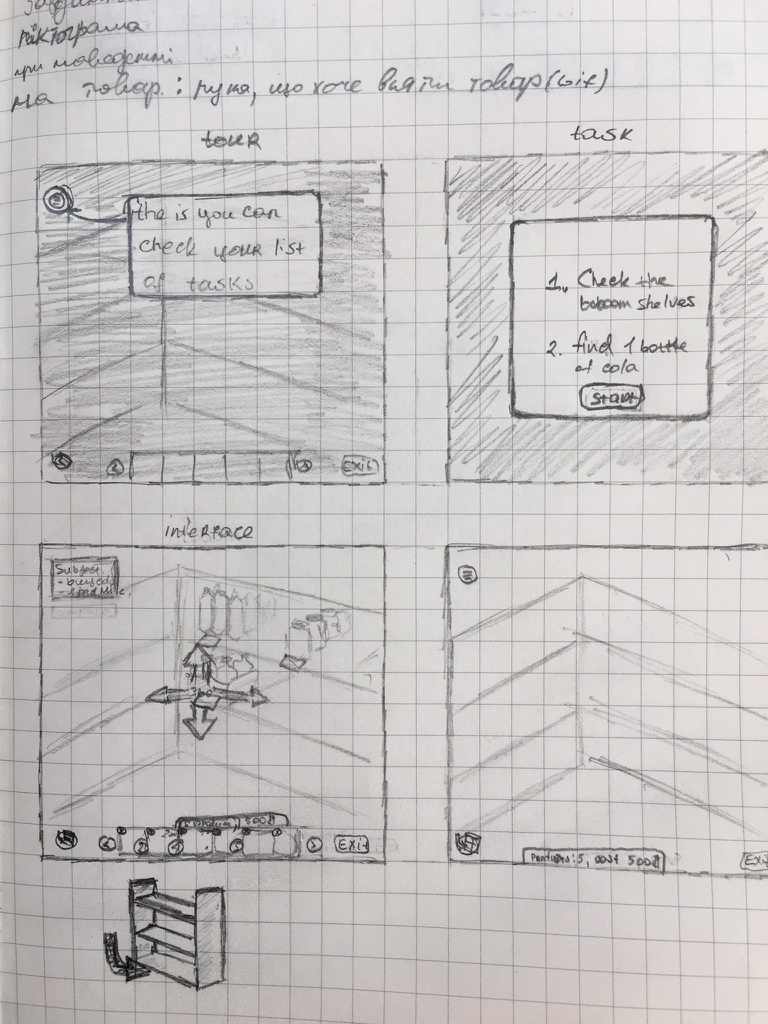 піктограма
при наведенні
на товар: рука, що хоче взяти товар (Gif)
tour
task
the is you can
check your list
of tasks
1. Check the
bottom shelves
2. find 1 bottle
of cola
start
Exit
interface
Subject
360
500₴
Exit
Products: 5, cost 500₴
Exit